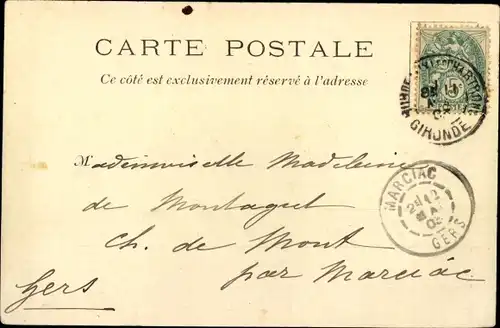 CARTE POSTALE
Ce côté est exclusivement réservé à l'adresse
Mademoiselle Madeleine
de Montaget
Ch. de Mont
par Marciac
Gers
5
GIRONDE
MARCIAC
GERS